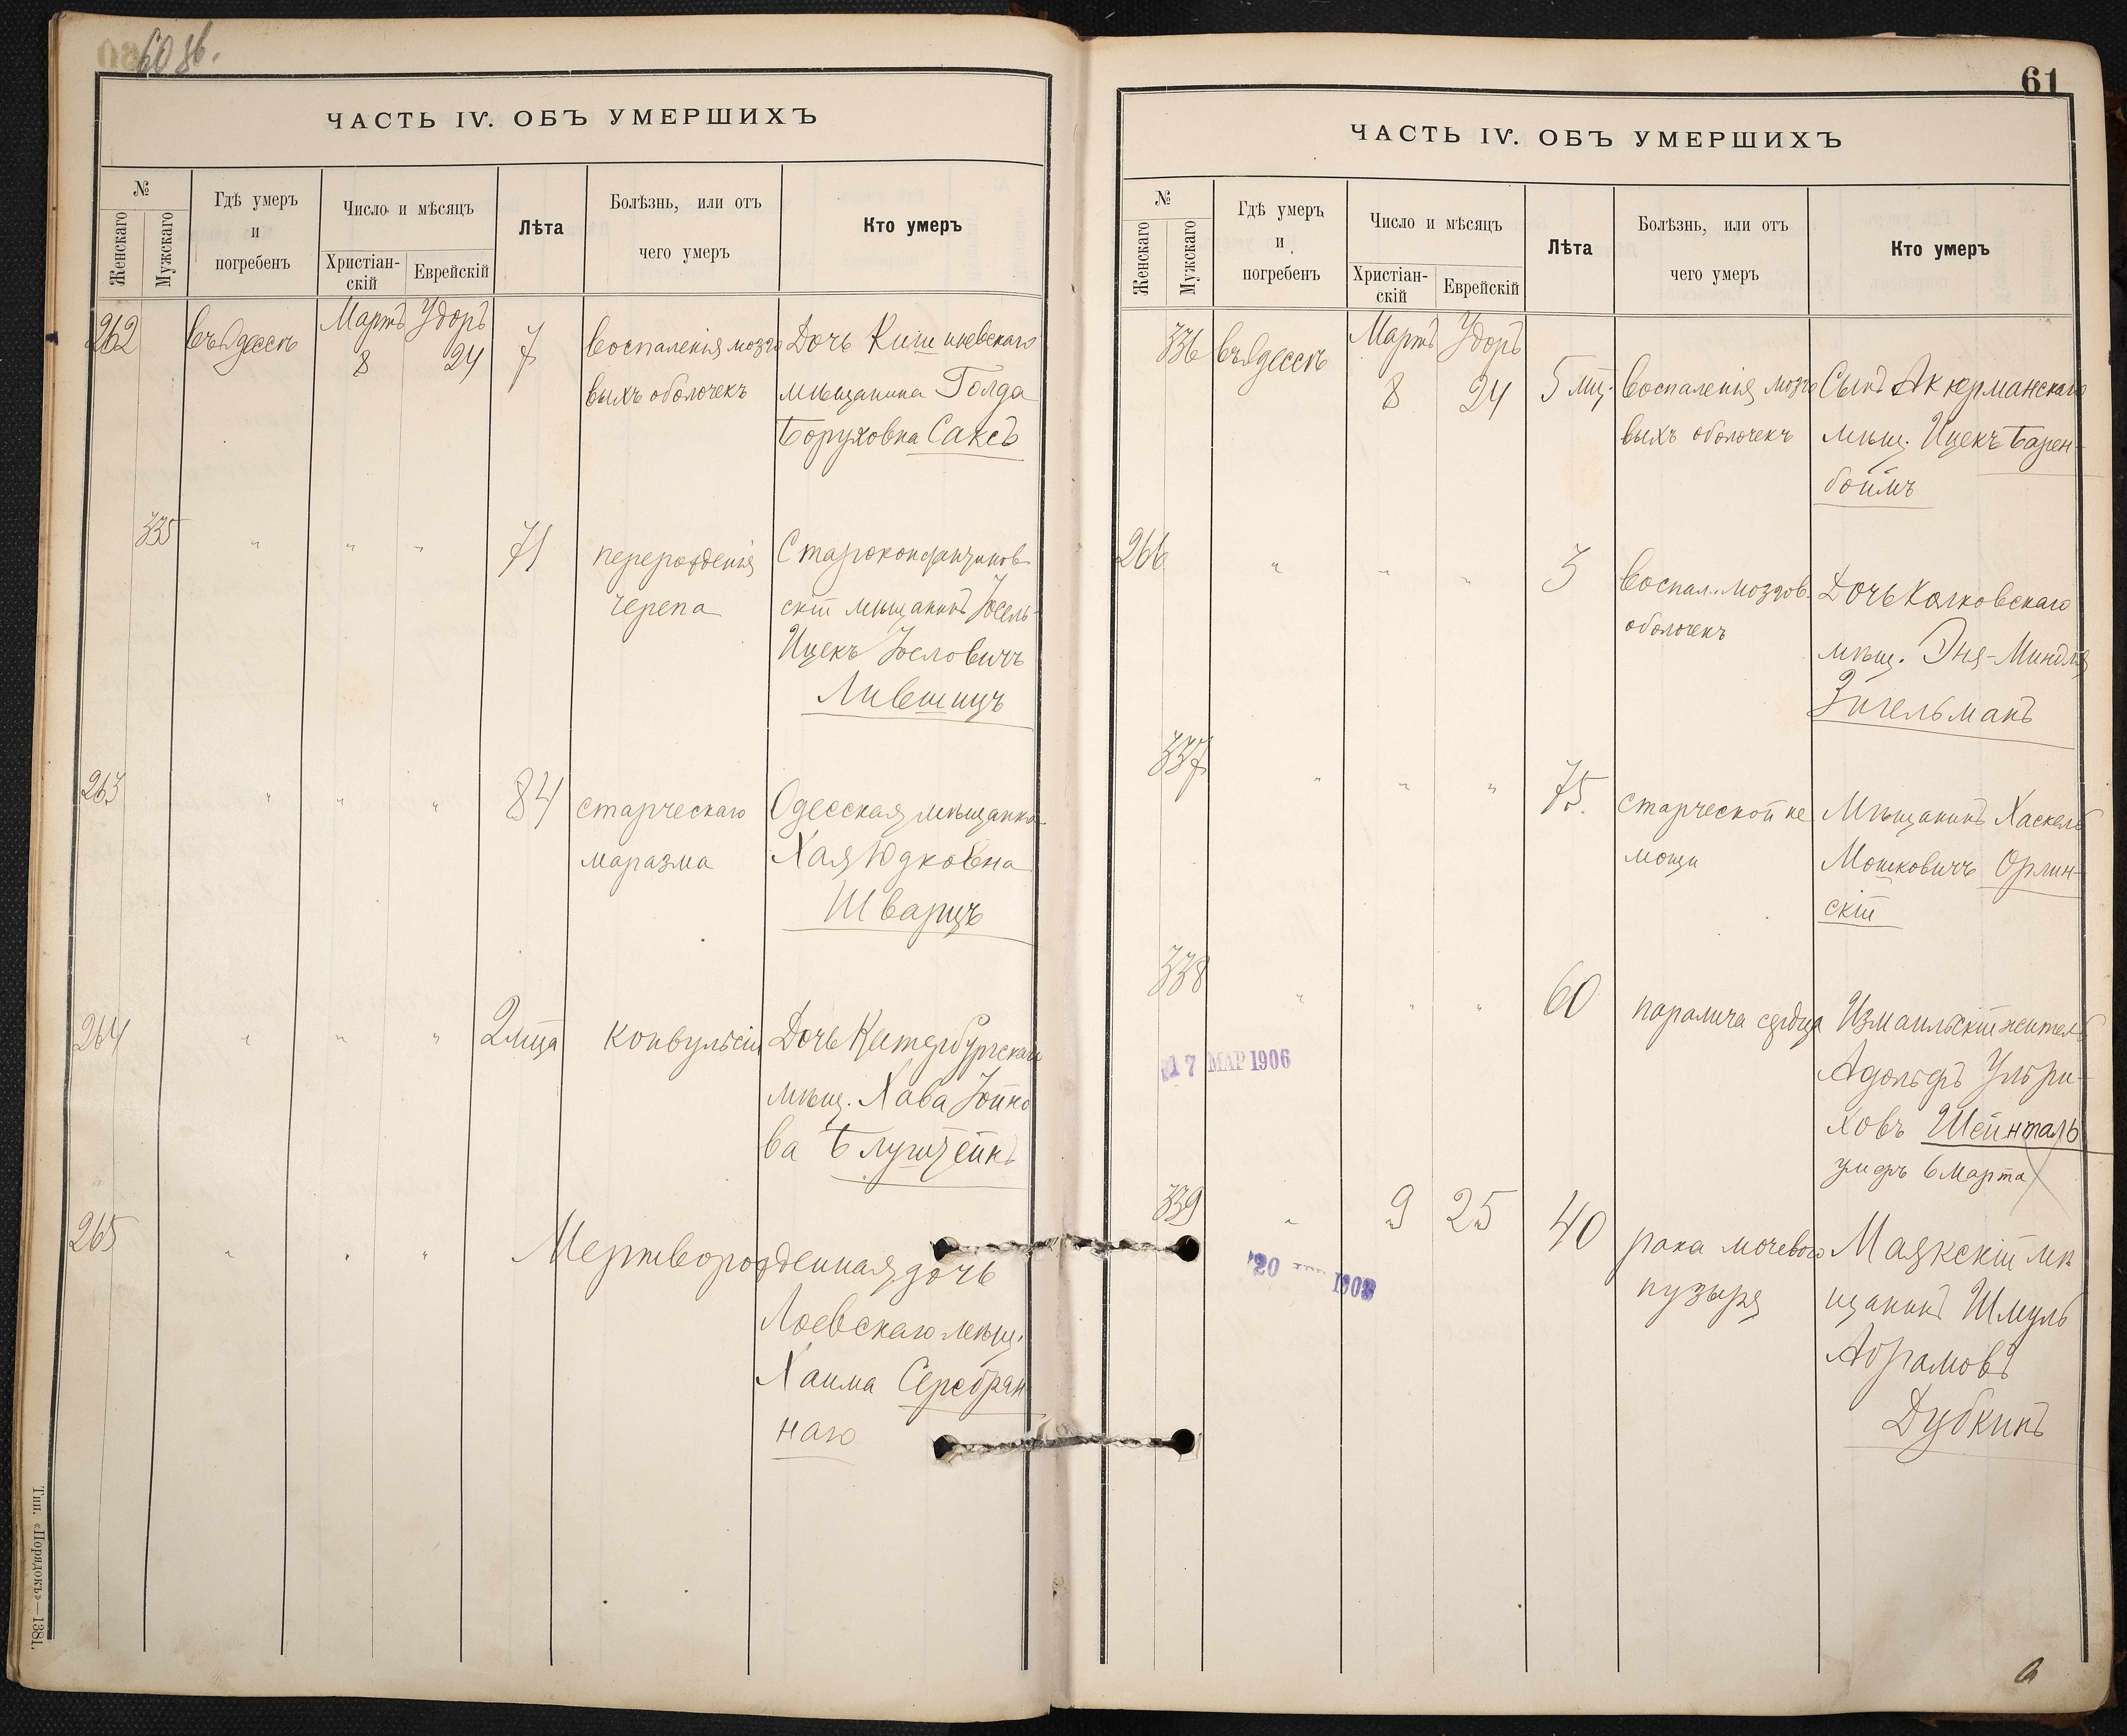 60 об.
ЧАСТЬ IV. ОБЪ УМЕРШИХЪ
№
Женскаго
Мужскаго
Гдѣ умеръ
и
погребенъ
Число и мѣсяцъ
Христіан-
скій
Еврейскій
Лѣта
Болѣзнь, или отъ
чего умеръ
Кто умеръ
262 въ Одессѣ Мартъ 8 Удоръ 24 7 воспаленія мозго Дочь Кишиневскаго
выхъ оболочекъ мѣщанина Голда
Боруховна Саксъ
335 " " " 71 перерожденія Староконстантинов
черепа скій мѣщанинъ Іосель-
Ицекъ Іословичъ
Лившицъ
263 " " " 84 старческаго Одесская мѣщанка
маразма Хая Юдковна
Шварцъ
264 " " " 2 мца конвульсіи Дочь Катербургскаго
мѣщ. Хава Іойно
ва Блуштейнъ
265 " " " Мертворожденная дочь
Лоевскаго мѣщ.
Хаима Серебрян
наго
Тип. «Порядокъ»—1381.
61
ЧАСТЬ IV. ОБЪ УМЕРШИХЪ
№
Женскаго
Мужскаго
Гдѣ умеръ
и
погребенъ
Число и мѣсяцъ
Христіан-
скій
Еврейскій
Лѣта
Болѣзнь, или отъ
чего умеръ
Кто умеръ
336 въ Одессѣ Мартъ 8 Удоръ 24 5 мц. воспаленія мозго Сынъ Аккерманскаго
выхъ оболочекъ мѣщ. Ицекъ Барен-
боймъ
266 " " " 3 воспал. мозгов. Дочь Колковскаго
оболочекъ мѣщ. Эня-Миндля
Зигельманъ
337 " " " 75. старческой не Мѣщанинъ Хаскель
мощи Мошковичъ Орлин-
скій
338 " " " 60 паралича сердца Измаильскій житель
17 МАР 1906
Адольфъ Ульри-
ховъ Шейнталь
умеръ 6 Марта
339 " 9 25 40 рака мочевого Маякскій мѣ
20 190
пузыря щанинъ Шмуль
Абрамовъ
Дубкинъ